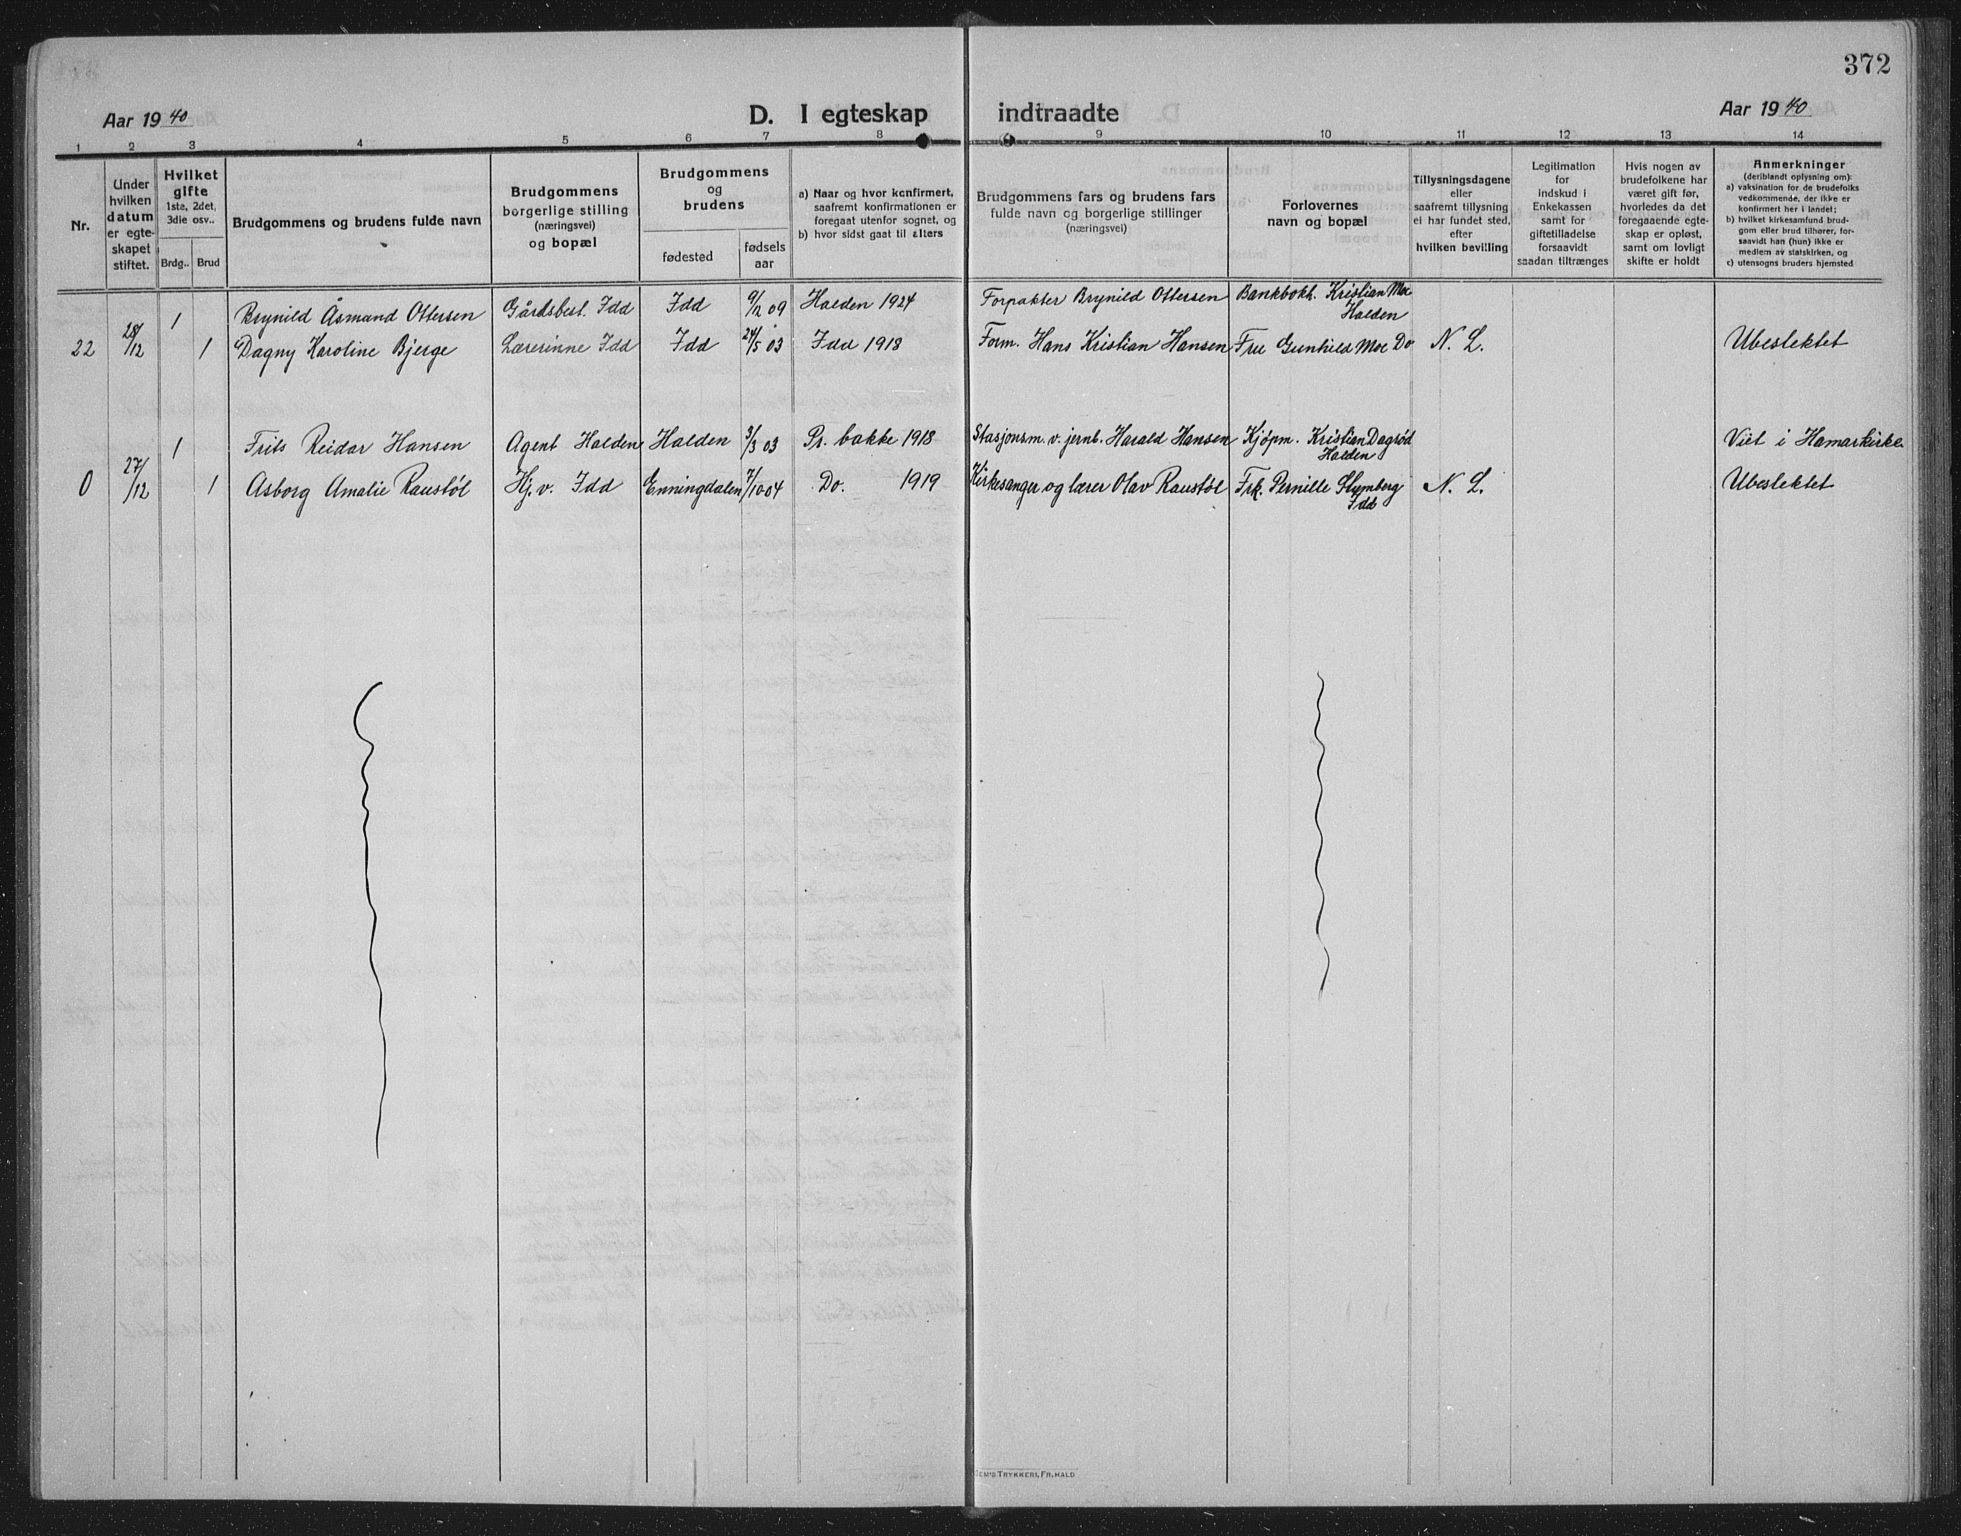 372
Aar 1940
D. I egteskap indtraadte
Aar 1940
1 2 3 4 5 6 7 8 9 10 11 12 13 14
Nr.
Under
hvilken
datum
er egte-
skapet
stiftet.
Hvilket
gifte
1ste, 2det,
3die osv..
Brdg..
Brud
Brudgommens og brudens fulde navn
Brudgommens
borgerlige stilling
(næringsvei)
og bopæl
Brudgommens
og
brudens
fødested
fødsels
aar
a) Naar og hvor konfirmert,
saafremt konfirmationen er
foregaat utenfor sognet, og
b) hvor sidst gaat til alters
Brudgommens fars og brudens fars
fulde navn og borgerlige stillinger
(næringsvei)
Forlovernes
navn og bopæl
Tillysningsdagene
eller
saafremt tillysning
ei har fundet sted,
efter
hvilken bevilling
Legitimation
for
indskud i
Enkekassen
samt for
giftetilladelse
forsaavidt
saadan tiltrænges
Hvis nogen av
brudefolkene har
været gift før,
hvorledes da det
foregaaende egte-
skap er opløst,
samt om lovligt
skifte er holdt
Anmerkninger
(deriblandt oplysning om):
a) vaksination for de brudefolks
vedkommende, der ikke er
konfirmert her i landet;
b) hvilket kirkesamfund brud-
gom eller brud tilhører, for-
saavidt han (hun) ikke er
medlem av statskirken, og
c) utensogns bruders hjemsted
1 Brynild Åsmund Ottersen Gårdsbest. Idd Idd 9/12 09 Halden 1924 Forpakter Brynild Ottersen Bankbokh. Kristian Moe
Halden
22 28/12 1 Dagny Karoline Bjerge Lærerinne Idd Idd 24/5 03 Idd 1918 Form. Hans Kristian Hansen Fru Gunhild Moe Do N. L. Ubeslektet
1 Frits Reidar Hansen Agent Halden Halden 3/3 03 Pr. bakke 1918 Stasjonsm. v. jernb. Harald Hansen Kjøpm. Kristian Dagsrød
Halden
Viet i Hamarkirke
0 27/12 1 Asborg Amalie Raustøl Hj. v. Idd Enningdalen 7/10 04 Do. 1919 Kirkesanger og lærer Olav Raustøl Frk. Pernille
Idd
N. L. Ubeslektet
TRYKKERI, FR.HALD